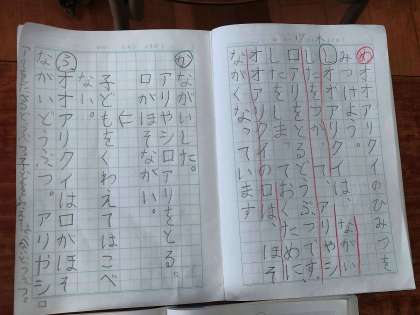 め オオアリクイのひみつを
みつけよう。
し オオアリクイは、ながい
したをつかって、アリやシ
ロアリをとるどうぶつです。
したをしまっておくために、
オオアリクイの口は、ほそ
ながくなっています。
ながいした。
アリやシロアリをとる。
口がほそながい。
に
子どもをくわえてはこべ
ない。
オオアリクイは口がほそ
ながいどうぶつ。アリやシロ